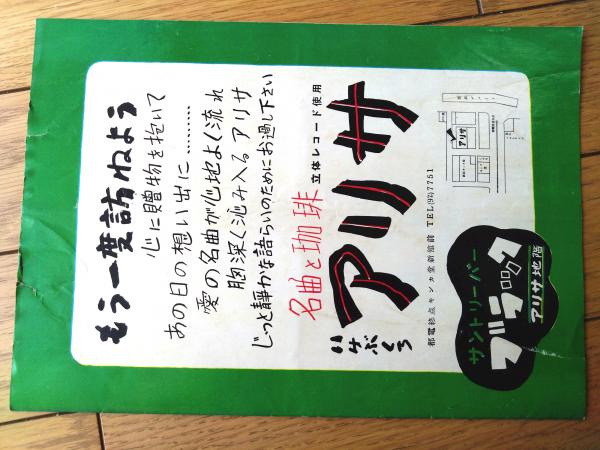 もう一度訪ねよう
心に贈物を抱いて
あの日の想い出に………
愛の名曲が心地よく流れ
胸深く沁み入るアリサ
じっと静かな語らいのためにお過し下さい
名曲と珈琲
立体レコード使用
いけぶくろ
アリサ
都電終点キンカ堂新館前 TEL(97)7751
アリサ
サントリーバー
ブラック
アリサ地階